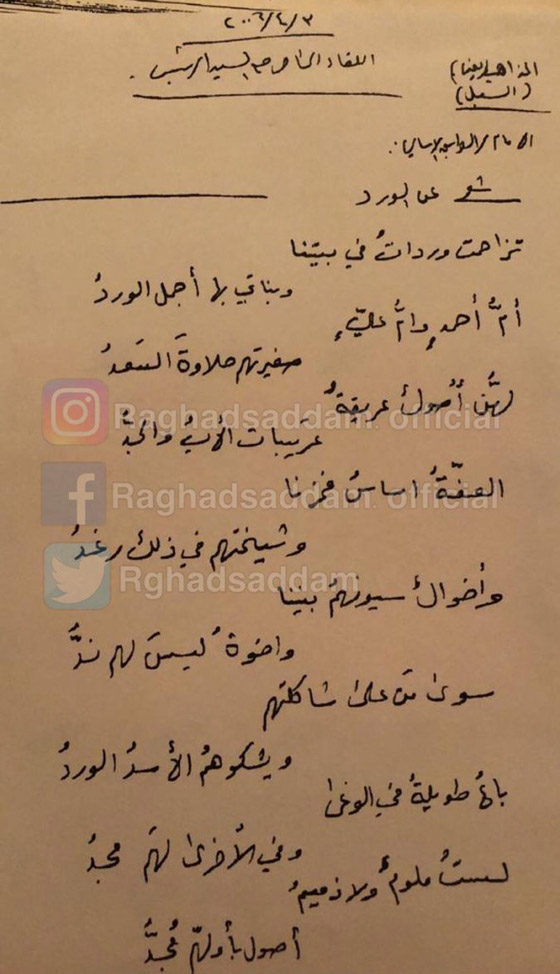 ٢٠٠٦/٤/٣
اللقاء الخاص مع السيد الرئيس
(السبل)
شعر عن الورد
تزاحمت ورداتُ في بيتنا
وبناتي بها أجمل الوردُ
أمُّ أحمدٍ وامُّ عليٍّ
صغيرتهم حلاوةَ السَعدُ
لهُنَّ أُصولٌ عريقةٌ
عريبات الأبُ والجَدُّ
العفّةُ اساسُ فخرنا
وشيختهم في ذلك رغدُ
وأخوالٌ سيوفهمُ بيننا
واخوةٌ ليسَ لهم ندُّ
سوى مَن على شاكلتهم
ويشكوهمُ الأسدُ الوردُ
باعٌ طويلةٌ في الوغى
وفي الأخرى لهم مجدُ
لستُ ملومٌ ولا ذميمُ
أصول بأولهم مُجدُّ
Raghadsaddam official
Raghadsaddam official
Rghadsaddam